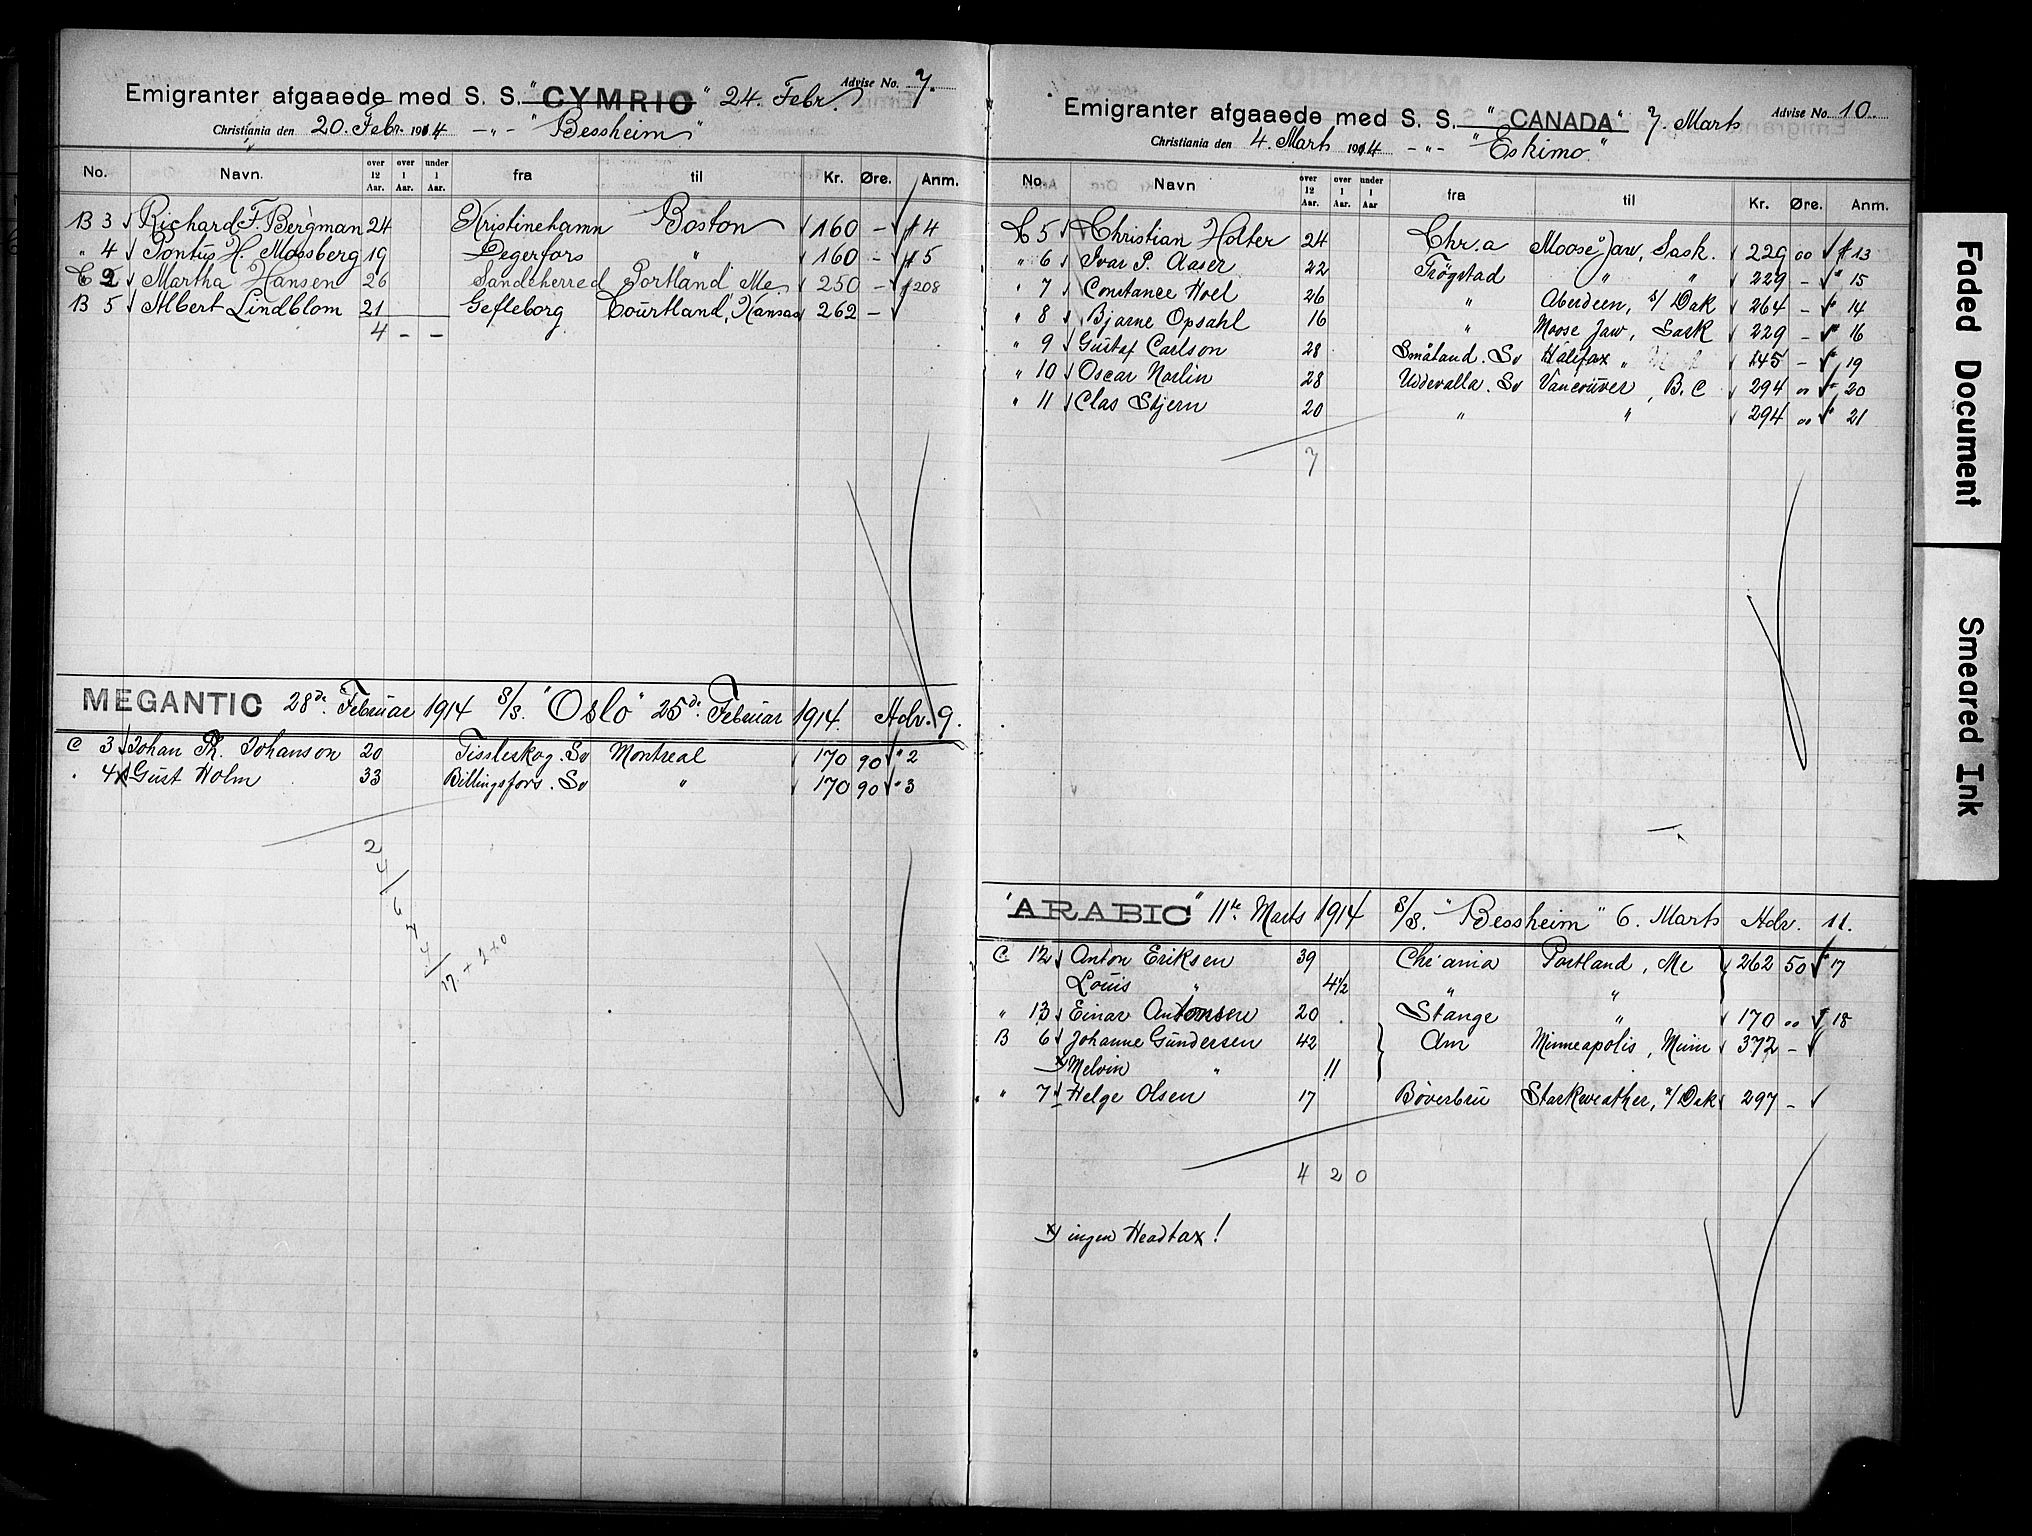 Emigranter afgaaede med S. S. "CYMRIC" 24. Febr. Advise No. 7.
Christiania den 20. Febr. 1914 -"- "Bessheim"
No. Navn. over 12 Aar. over 1 Aar. under 1 Aar. fra til Kr. Øre. Anm.
B 3 Richard F. Bergman 24 Kristinehamn Boston 160 - # 4
" 4 Pontus H. Mossberg 19 Degerfors " 160 - # 5
C 2 Martha Hansen 26 Sandeherred Portland Me. 250 - # 208
B 5 Albert Lindblom 21 Gefleborg Courtland, Kansas 262 -
4 - -
MEGANTIC 28de Februar 1914 S/S. "Oslo" 25de Februar 1914. Adv. 9.
C 3 Johan Th. Johanson 20 Tissleskog. Sv Montreal 170 90 " 2
" 4 x Gust Holm 33 Billingsfors. Sv " 170 90 " 3
2
4
6
7
4
17 + 2 + 0
Emigranter afgaaede med S. S. "CANADA" 7. Marts Advise No. 10.
Christiania den 4. Marts 1914 -"- "Eskimo"
No. Navn over 12 Aar. over 1 Aar. under 1 Aar fra til Kr. Øre. Anm.
C 5 Christian Holter 24 Chr.a Moose Jaw, Sask. 229 00 # 13
" 6 Ivar P. Aaser 22 Trøgstad " " 229 - " 15
" 7 Constance Hoel 26 " Aberdeen, S/Dak 264 - " 14
" 8 Bjarne Opsahl 16 " Moose Jaw, Sask 229 - " 16
" 9 Gustaf Carlson 28 Småland. Sv Halifax " 145 - " 19
" 10 Oscar Norlin 28 Uddevalla. Sv Vancouver, B.C 294 " " 20
" 11 Clas Stjern 20 " " 294 00 " 21
7
"ARABIC" 11te Marts 1914 S/S. "Bessheim" 6. Marts Adv. 11.
C 12 Anton Eriksen 39 Chr'ania Portland, Me 262 50 " 17
Louis " 4½ " "
" 13 Einar Antonsen 20 Stange " 170 00 " 18
B 6 Johanne Gundersen 42 Am Minneapolis, Minn 372 -
x Melvin " 11
" 7 Helge Olsen 17 Bøverbru Starkweather, N/Dak 297 -
4 2 0
x) ingen Headtax!
Faded Document
Smeared Ink